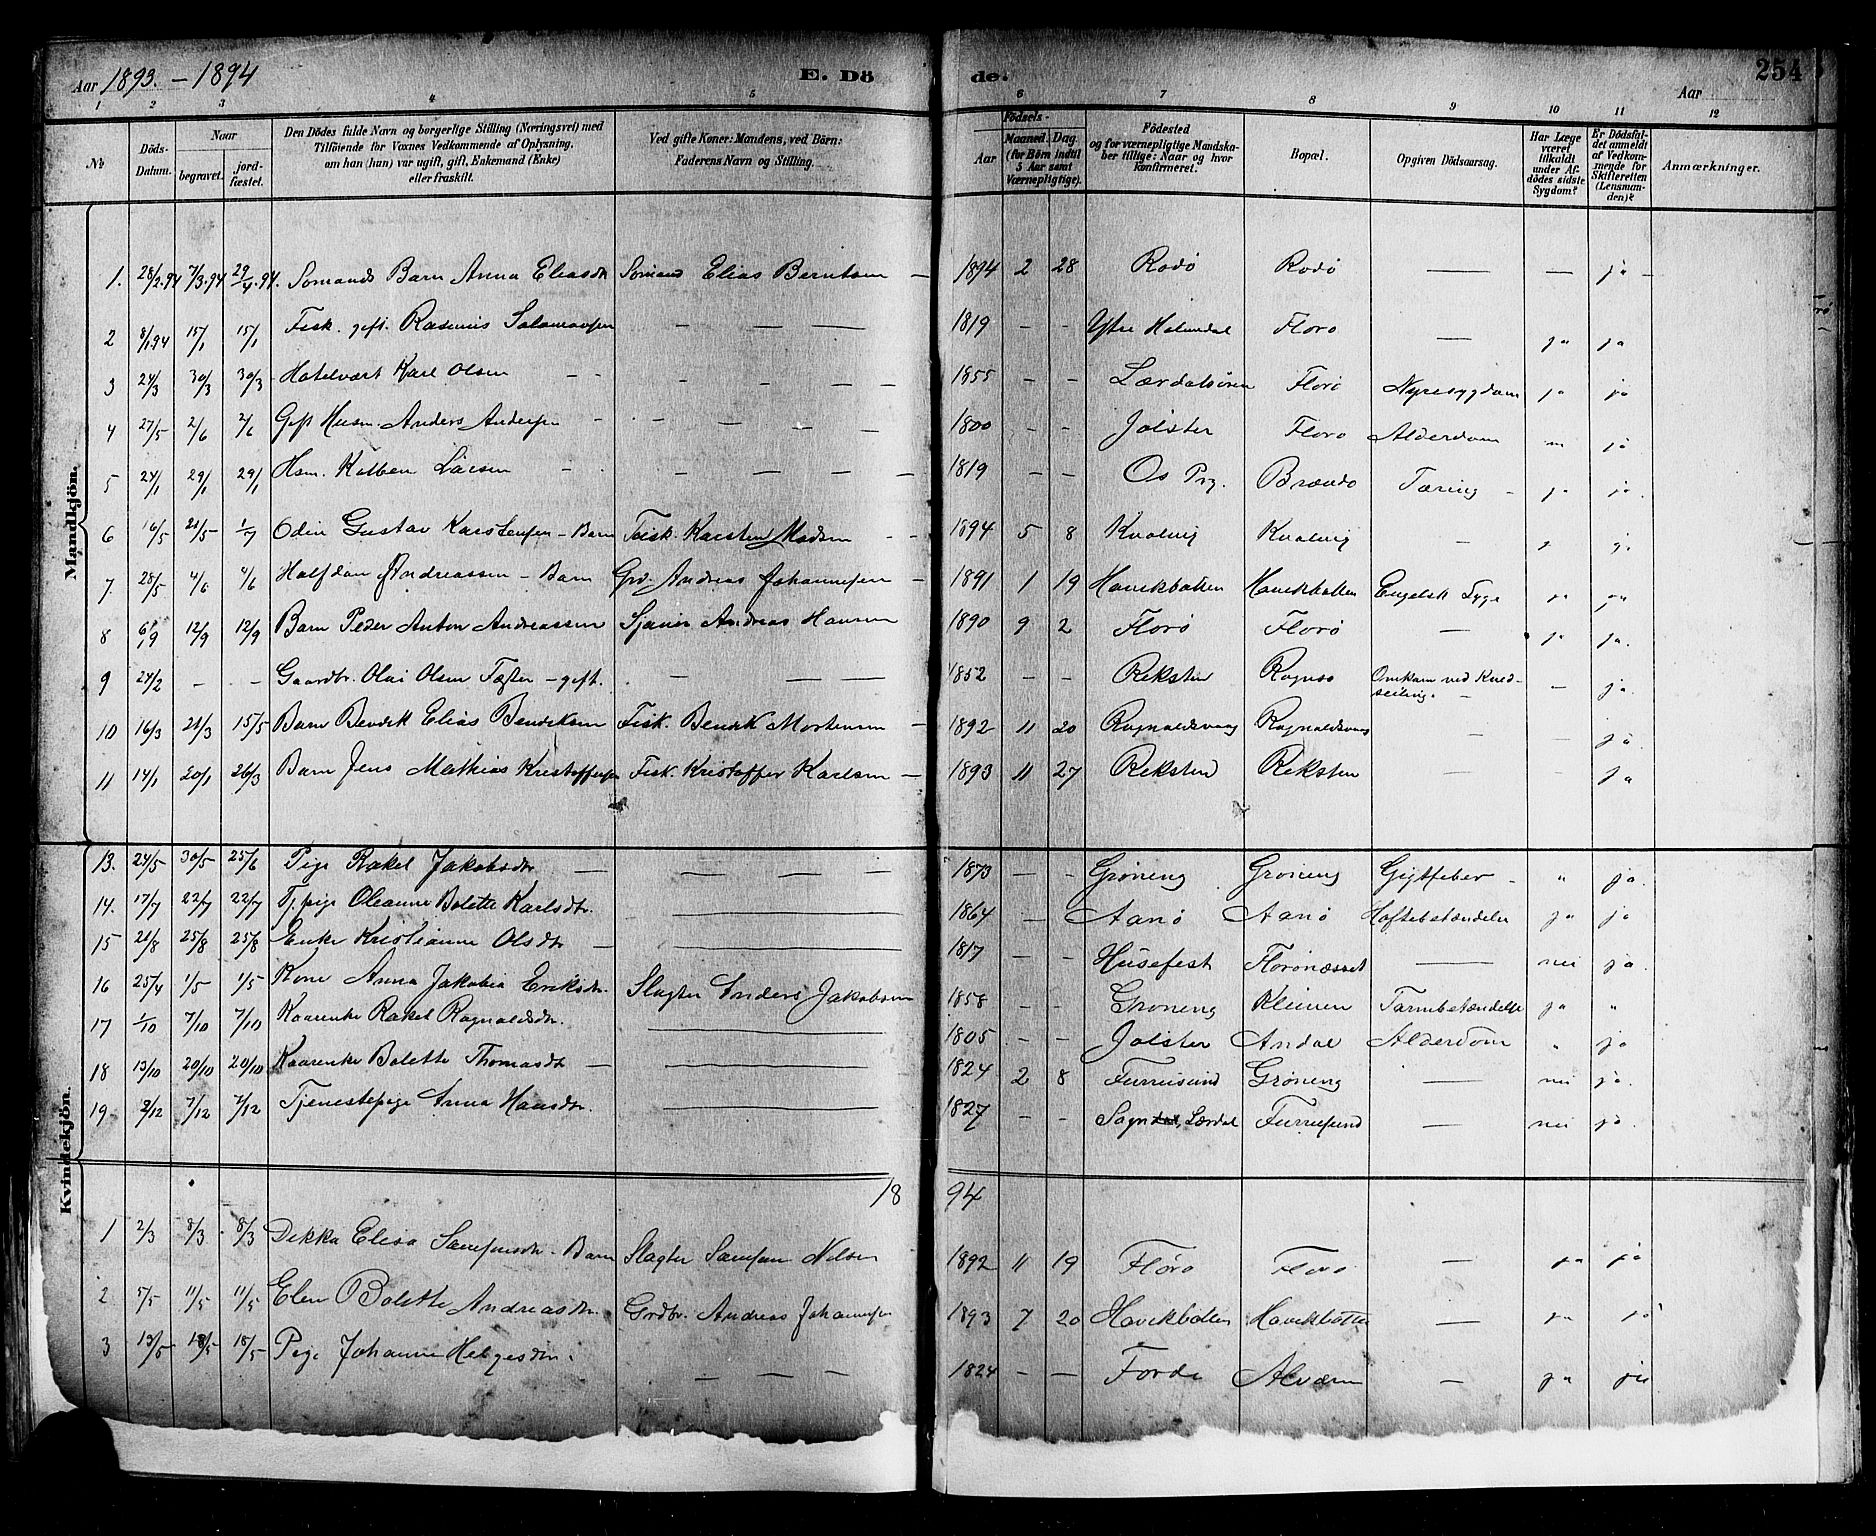 Aar 1893. - 1894 E. Dö de. Aar 254
1 2 3 4 5 6 7 8 9 10 11 12
№ Döds-Datum. Naar begravet. jordfæstet. Den Dödes fulde Navn og borgerlige Stilling (Næringsvei) med Tilföiende for Voxnes Vedkommende af Oplysning, om han (hun) var ugift, gift, Enkemand (Enke) eller fraskilt. Ved gifte Koner: Mandens, ved Börn: Faderens Navn og Stilling. Födsels- Aar Maaned. Dag. (for Börn indtil 5 Aar samt Værnepligtige). Födested og for værnepligtige Mandskaber tillige: Naar og hvor konfirmeret. Bopæl. Opgiven Dödsaarsag. Har Læge været tilkaldt under Afdödes sidste Sygdom? Er Dödsfaldet anmeldt af Vedkommende for Skifteretten (Lensmanden)? Anmærkninger.
Mandkjön.
1. 28/2.94 7/3.94 29/4.94. Sömands Barn Anna Eliasdr Sömand Elias Berntsen — 1894 2 28 Rodö Rodö — — ja —
2 8/1.94 15/1 15/1 Fisk. gift. Rasmus Salamonsen — — — 1819 - - Ytre Holmedal Floro — ja ja
3 24/3 30/3 30/3 Hotelvært Karl Olsen — — — — — 1855 - - Lærdalsören Florö Nyresygdom ja ja
4 27/5 2/6 2/6 Gift Husm. Anders Andersen — — — — — 1800 - - Jölster Florö Alderdom ja
5 24/1 29/1 29/1 Hsm. Kolben Larsen — — — — — 1819 - - Os Prg. Brændö Tæring — ja ja
6 16/5 21/5 1/7 Odin Gustav Karstensen - Barn Fisk. Karsten Madsen - - 1894 5 8 Kvalvig Kvalvig — ja
7. 28/5 4/6 4/6 Halfdan Andreassen - Barn Grd. Andreas Johannesen — 1891 1 19 Havikbotten Havikbotten Engelsk Syge ja ja
8 6/9 12/9 12/9 Barn Peder Anton Andreassen Andreas Hansen 1890 9 2 Florö Florö — ja ja.
9 24/2 - - Gaardbr. Olai Olsen - gift. — — — 1852 - - Reksten Omkom ved seiling. — — ja.
10 16/3 21/3 15/5 Barn Bendik Elias Bendiksen Fisk. Bendik Mortensen — 1892 11 20 Rognaldsvaag Rognaldsvaag — — ja
11 14/1 20/1 26/3 Barn Jens Mathias Kristoffersen Fisk. Kristoffer Karlsen — 1893 11 27 Reksten Reksten — — ja
Kvindekjön.
13. 24/5 30/5 25/6 Pige Rakel Jakobsdr — — — — 1873 — - Gröneng Gröneng Gigtfeber - " ja.
14. 17/7 22/7 22/7 Tj.pige Oleanne Bolette Karlsdr. — 1864 - Aanö Aanö Hoftebetændelse ja ja
15 21/8 25/8 25/8 Enke Kristianne Olsdr — — 1817 - - Husefest Floronæsset — nei ja.
16 25/4 1/5 1/5 Kone Anna Jakobia Eriksdr. Slagter Anders Jakobsen 1858 - - Gröneng Kleiven Tarmbetændelse ja "
17 1/10 7/10 7/10 Kaarenke Rakel Rognaldsdr. — 1805 - - Jölster Andal Alderdom " ja
18 13/10 20/10 20/10 Kaarenke Bolette Thomasdr — — 1824 2 8 Furresund Gröneng — nei ja.
19 2/12 7/12 7/12 Tjenestepige Anna Hansdr. — 1827 - - Lærdal Furresund — nei ja.
18 94
1 2/3 8/3 8/3 Dekka Elisa Samsonsdr - Barn Slagter Samson Nilsen 1892 11 19 Flörö Florö — ja ja
2 5/5 11/5 11/5 Elen Bolette Andreasdr. Grdbr. Andreas Johannesen 1893 7 20 Havikbotten Havikbotten — ja ja
3 13/5 18/5 18/5 Pige Johanne Helgesdtr. — — — 1824 - — Forde Alværn — ja